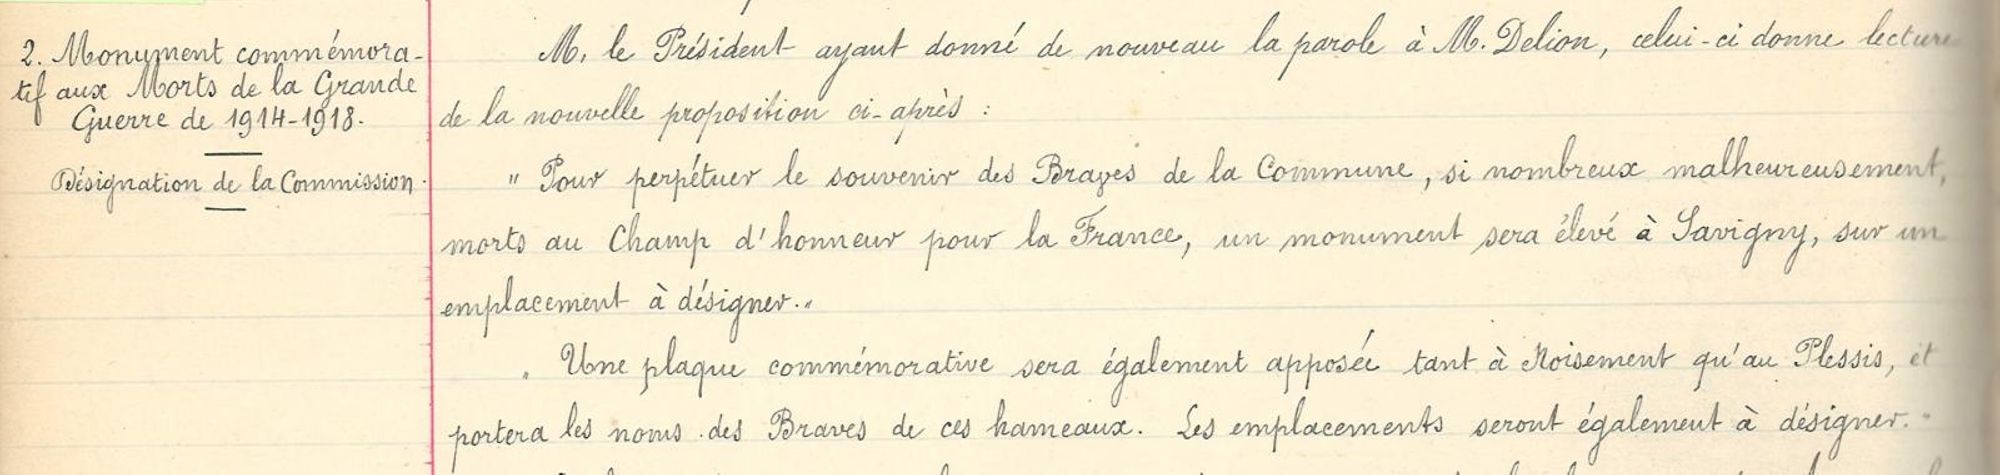 2. Monument commémora-
tif aux Morts de la Grande
Guerre de 1914-1918.
Désignation de la Commission.
M. le Président ayant donné de nouveau la parole à M. Delion, celui-ci donne lecture
de la nouvelle proposition ci-après :
" Pour perpétuer le souvenir des Braves de la Commune, si nombreux malheureusement,
morts au Champ d'honneur pour la France, un monument sera élevé à Savigny, sur un
emplacement à désigner. "
" Une plaque commémorative sera également apposée tant à Noisement qu'au Plessis, et
portera les noms des Braves de ces hameaux. Les emplacements seront également à désigner. "